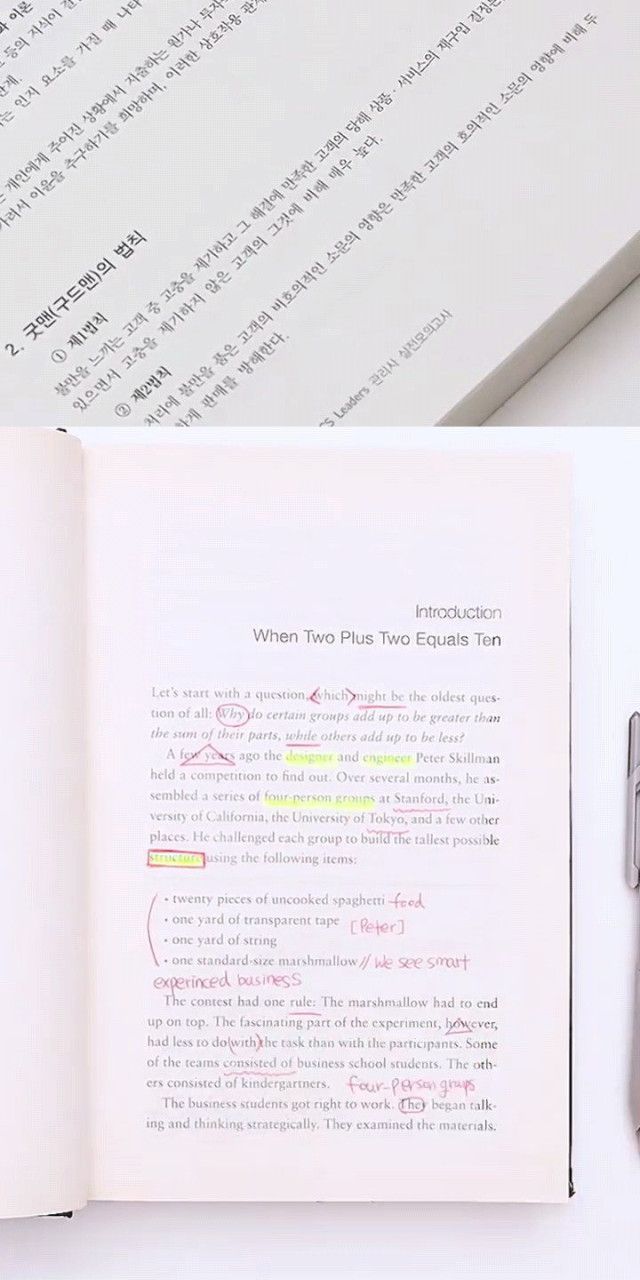 과 이론
등의 지식이 전
는 인지 요소를 가질 때 나타
개인에게 주어진 상황에서 지출하는 원가나 투자
가려서 이윤을 추구하기를 희망하며, 이러한 상호작용 관계
2. 굿맨(구드맨)의 법칙
① 제1법칙
불만을 느끼는 고객 중 고충을 제기하고, 그 해결에 만족한 고객의 당해 상품·서비스의 재구입 결정은
있으면서 고충을 제기하지 않은 고객의 그것에 비해 매우 높다.
② 제2법칙
처리에 불만을 품은 고객의 비호의적인 소문의 영향은 만족한 고객의 호의적인 소문의 영향에 비해 두
하게 판매를 방해한다.
CS Leaders 관리사 실전모의고사
Introduction
When Two Plus Two Equals Ten
Let's start with a question, which might be the oldest ques-
tion of all: Why do certain groups add up to be greater than
the sum of their parts, while others add up to be less?
A few years ago the designer and engineer Peter Skillman
held a competition to find out. Over several months, he as-
sembled a series of four-person groups at Stanford, the Uni-
versity of California, the University of Tokyo, and a few other
places. He challenged each group to build the tallest possible
structure using the following items:
• twenty pieces of uncooked spaghetti food
• one yard of transparent tape [Peter]
• one yard of string
• one standard-size marshmallow // we see smart
experinced business
The contest had one rule: The marshmallow had to end
up on top. The fascinating part of the experiment, however,
had less to do with the task than with the participants. Some
of the teams consisted of business school students. The oth-
ers consisted of kindergartners. four-person graps
The business students got right to work. They began talk-
ing and thinking strategically. They examined the materials.